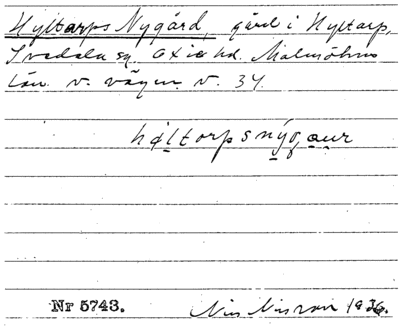 Hyltarps Nygård, gård i Hyltarp,
Svedala sn. Oxie hd. Malmöhus
län. v. vägen v. 34.
høltorpsnýgaur
Nr 5743.
Nils Nilsson 1936.